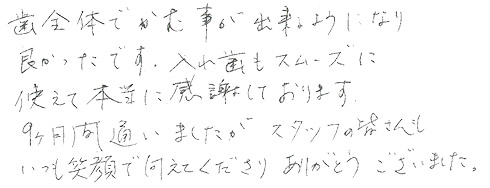 歯全体でかむ事が出来るようになり
良かったです。入れ歯もスムーズに
使えて本当に感謝しております。
9ヶ月間通いましたが スタッフの皆さんも
いつも笑顔で迎えてくださり ありがとう ございました。